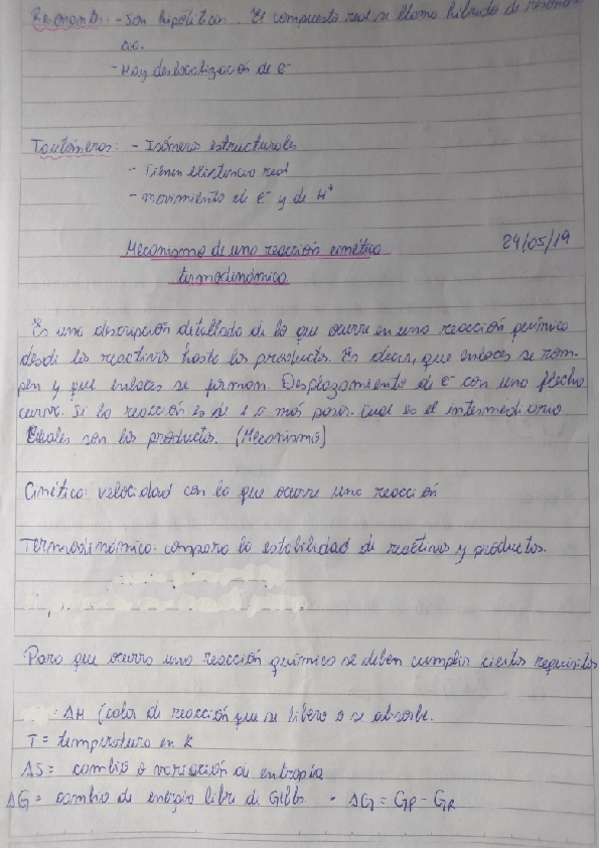 Resonantes: - Son hipóliticas. El compuesto real se llama híbrido de resonan
cia.
- Hay deslocalización de e-
Tautómeros: - Isómeros estructurales
- Tienen existencia real
- movimiento de e- y de H+
Mecanismo de una reacción cinética 24/05/19
termodinámica
Es una descripción detallada de lo que ocurre en una reacción química
desde los reactivos hasta los productos. Es decir, que enlaces se rom-
pen y que enlaces se forman. Desplazamiento de e- con una flecha
curva. Si la reacción es de 1 o más pasos. Cual es el intermediario
Cuales son los productos. (Mecanismo)
Cinética: velocidad con la que ocurre una reacción
Termodinámica: compara la estabilidad de reactivos y productos.
Para que ocurra una reacción química se deben cumplir ciertos requisitos
ΔH (calor de reacción que se libera o se absorbe.
T = temperatura en K
ΔS = cambio o variación de entropía
ΔG = cambio de energía libre de Gibbs. - ΔG = GP - GR